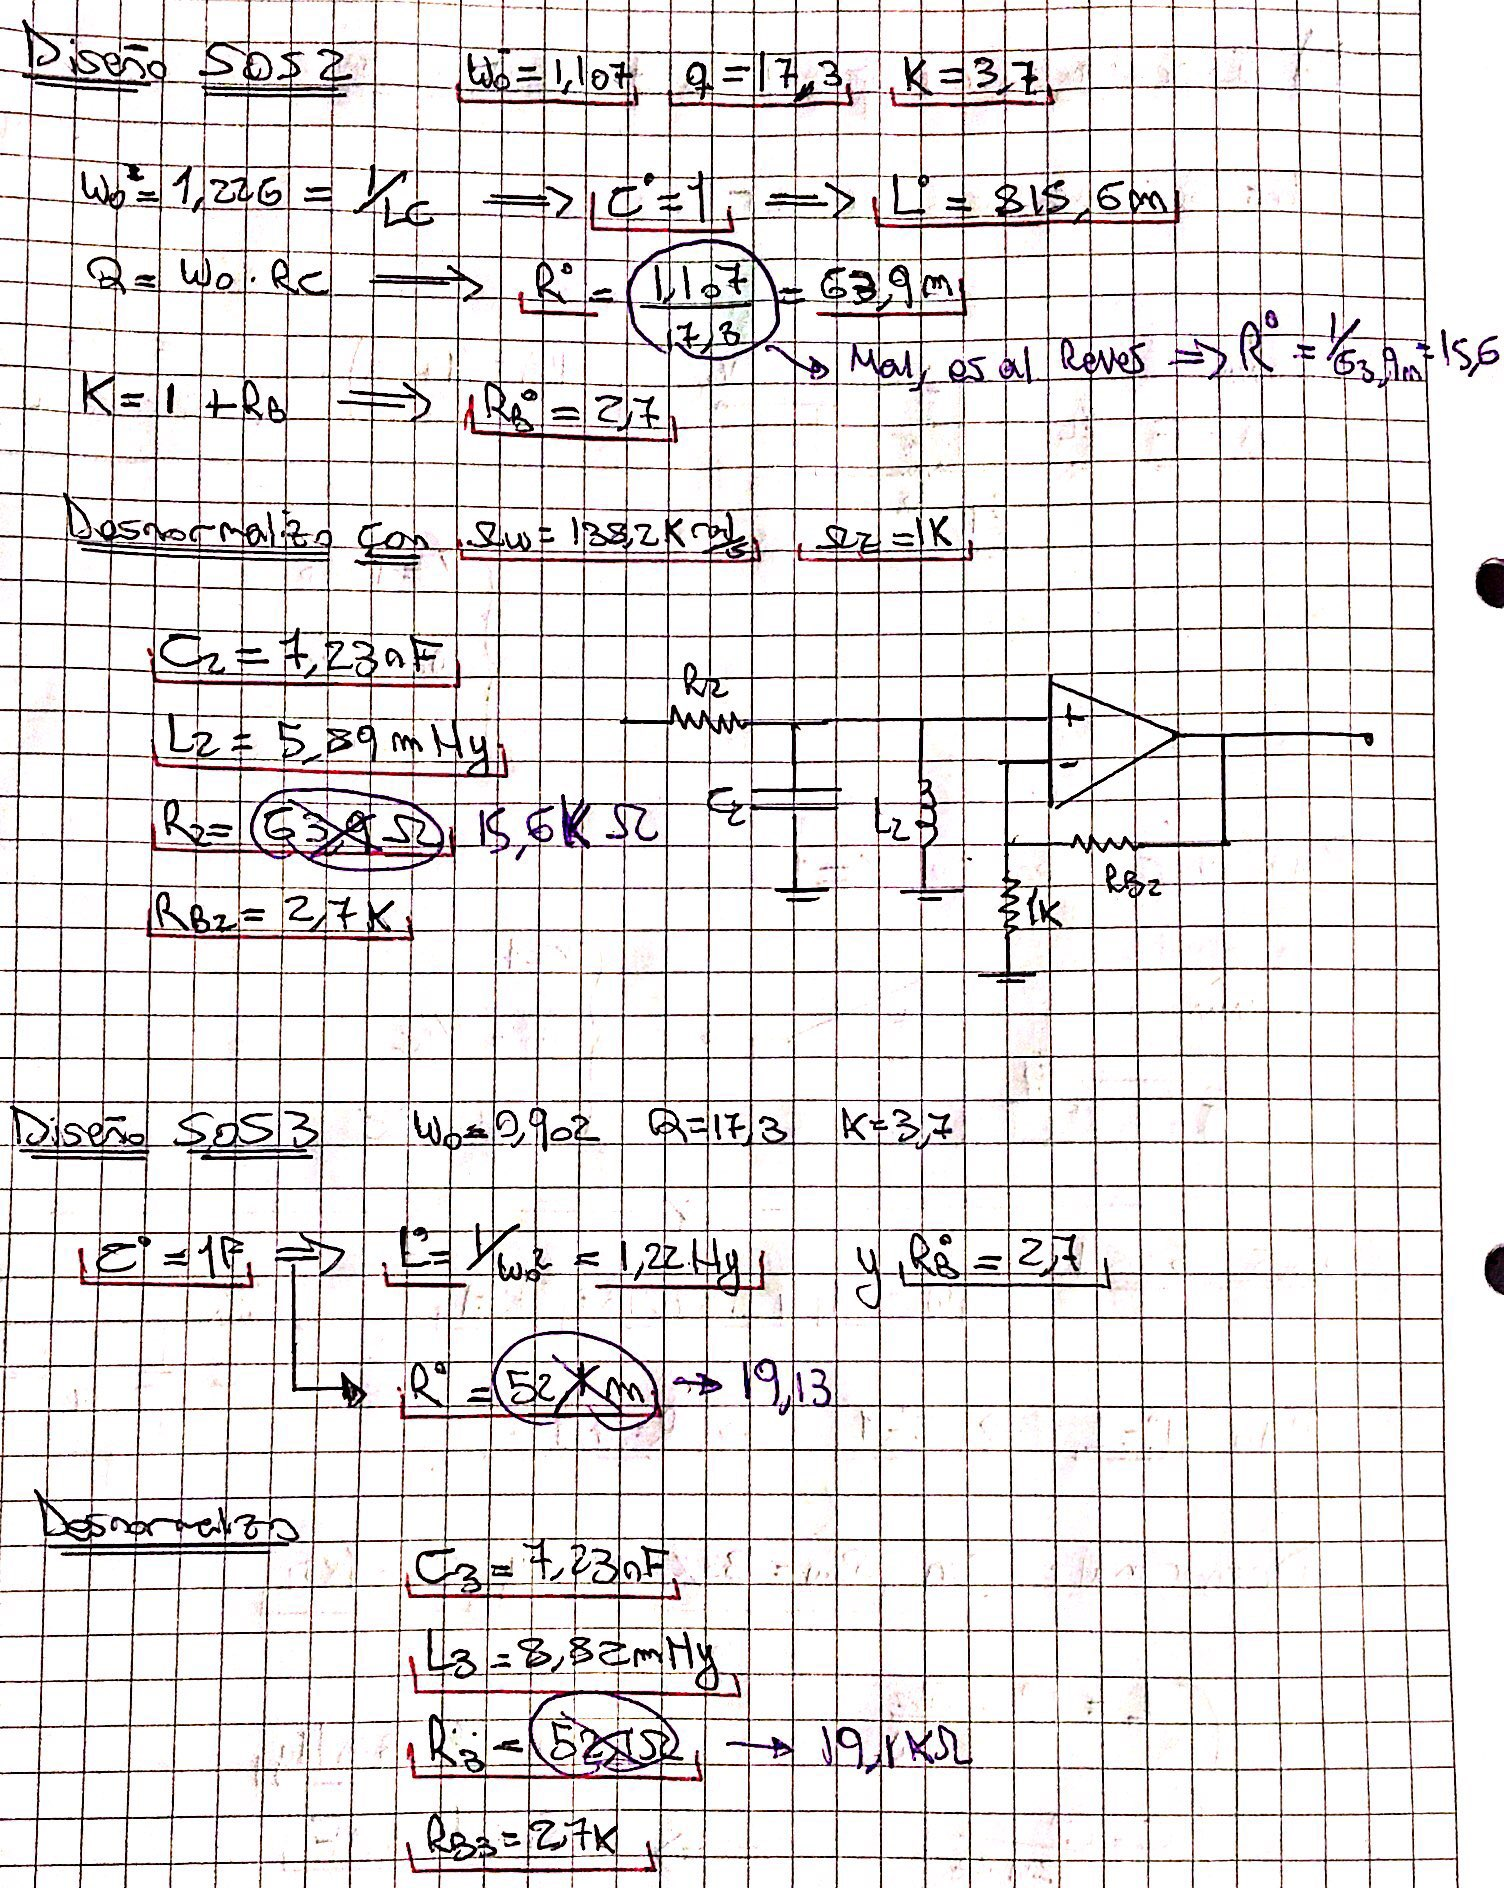 Diseño SOS2 W₀ = 1,107 q = 17,3 K = 3,7
W₀² = 1,226 = 1/LC ⟹ C° = 1 ⟹ L° = 815,6m
Q = W₀ · RC ⟹ R° = 1,107/17,3 = 63,9m
→ Mal, es al Reves ⟹ R° = 1/63,9m = 15,6
K = 1 + RB ⟹ RB° = 2,7
Desnormalizo con Ωw = 138,2K rad/s Ωz = 1K
C2 = 7,23nF
L2 = 5,89 mHy
R2 = 63,9 Ω 15,6K Ω
RB2 = 2,7K
R2
C2
L2
+
-
RB2
1K
Diseño SOS3 W₀ = 0,902 Q = 17,3 K = 3,7
C° = 1F ⟹ L° = 1/W₀² = 1,22Hy y RB° = 2,7
R° = 52,1m → 19,13
Desnormalizo
C3 = 7,23nF
L3 = 8,82mHy
R3 = 52,1Ω → 19,1KΩ
RB3 = 2,7K